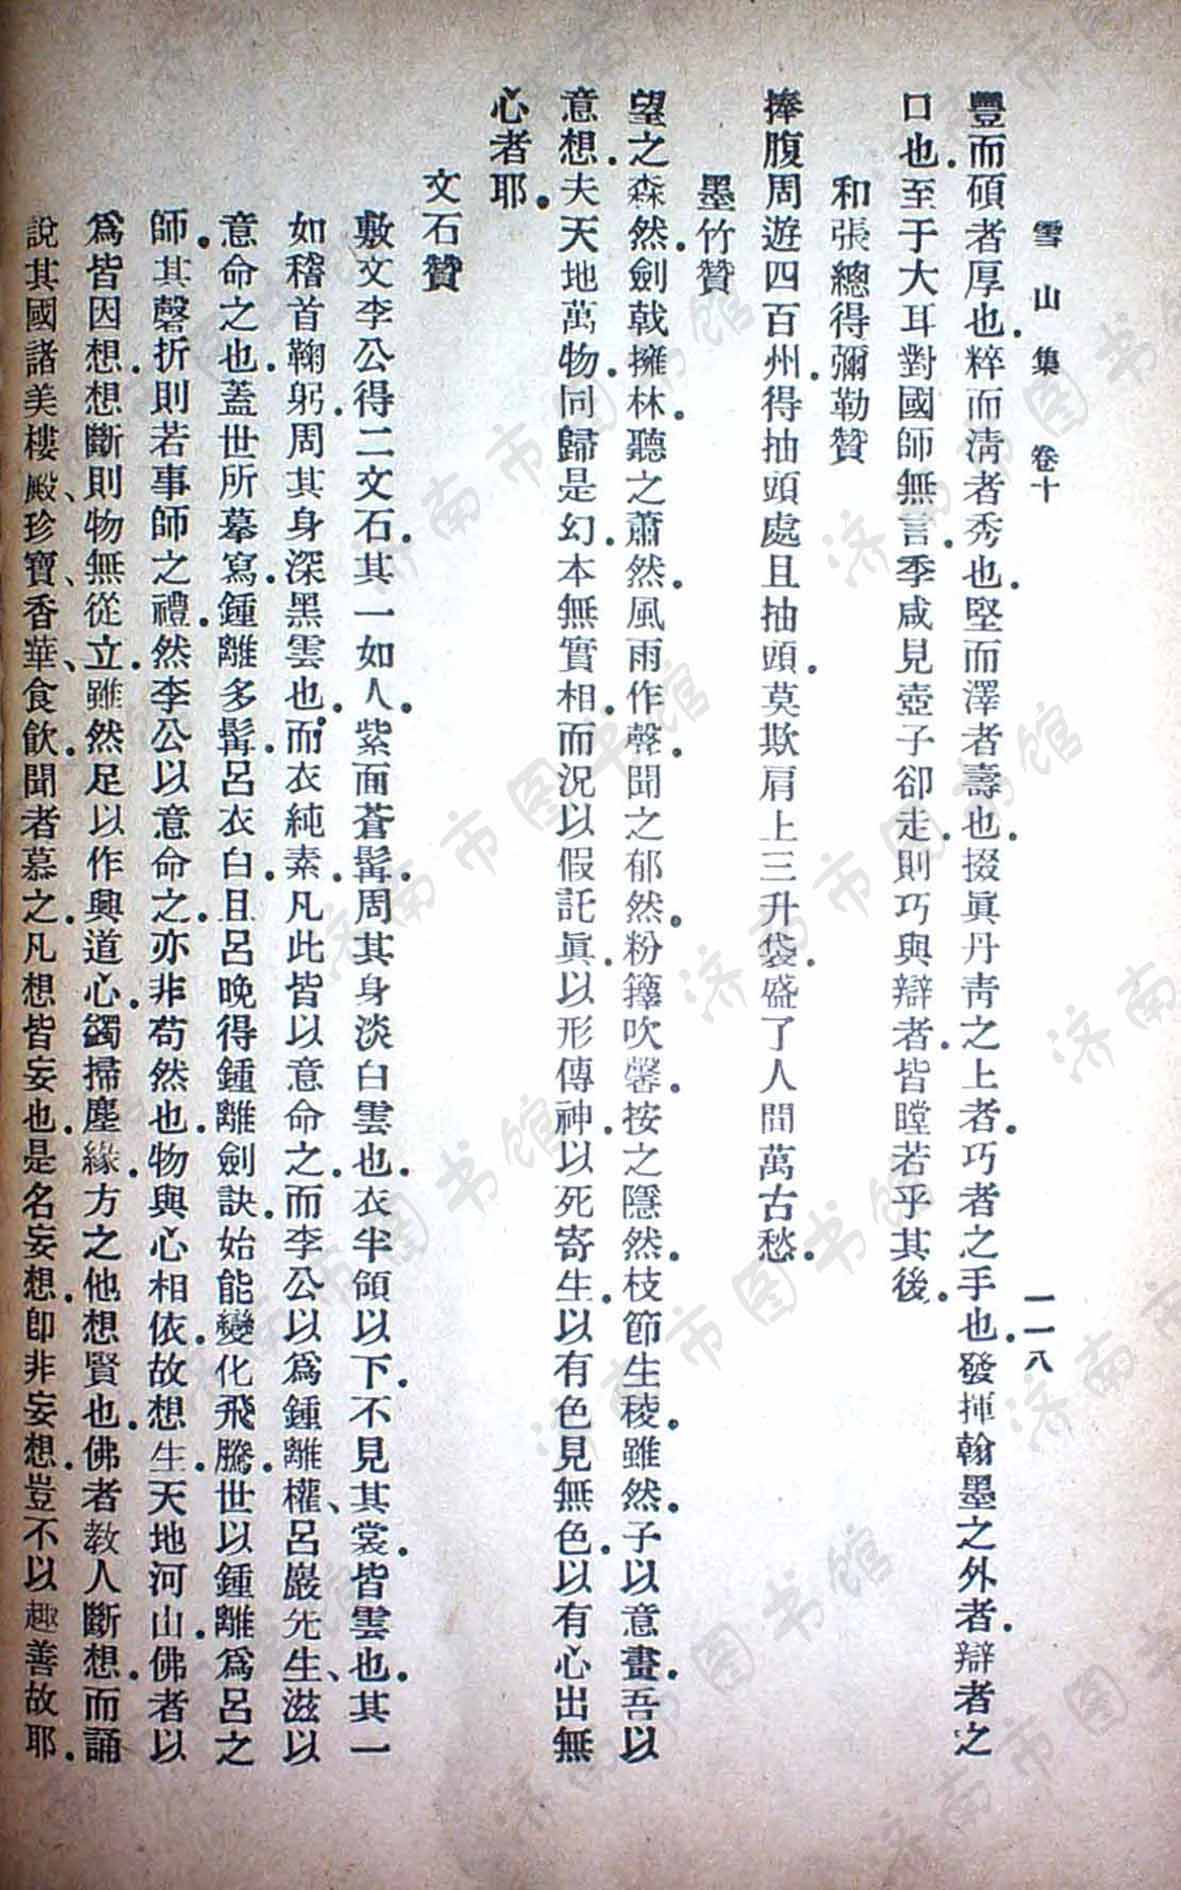 雪山集 卷十 一一八
豐而碩者厚也．粹而淸者秀也．堅而澤者壽也．掇眞丹靑之上者．巧者之手也．發揮翰墨之外者．辯者之
口也．至于大耳對國師無言．季咸見壺子卻走．則巧與辯者．皆瞠若乎其後．
和張總得彌勒贊
捧腹周遊四百州．得抽頭處且抽頭．莫欺肩上三升袋．盛了人間萬古愁．
墨竹贊
望之森然．劍戟擁林．聽之蕭然．風雨作聲．聞之郁然．粉籜吹馨．按之隱然．枝節生稜．雖然．子以意畫．吾以
意想．夫天地萬物．同歸是幻．本無實相．而況以假託眞．以形傳神．以死寄生．以有色見無色．以有心出無
心者耶．
文石贊
敷文李公得二文石．其一如人．紫面蒼髯．周其身淡白雲也．衣半領以下．不見其裳．皆雲也．其一
如稽首鞠躬．周其身深黑雲也．而衣純素．凡此皆以意命之．而李公以爲鍾離權、呂巖先生、滋以
意命之也．蓋世所摹寫．鍾離多髯．呂衣白．且呂晚得鍾離劍訣．始能變化飛騰．世以鍾離爲呂之
師．其磬折則若事師之禮．然李公以意命之．亦非苟然也．物與心相依．故想生．天地河山．佛者以
爲皆因想．想斷則物無從立．雖然足以作興道心．蠲掃塵緣．方之他想賢也．佛者教人斷想．而誦
說其國諸美樓殿、珍寶、香華、食飮．聞者慕之．凡想皆妄也．是名妄想．卽非妄想．豈不以趣善故耶．
濟南市图书馆